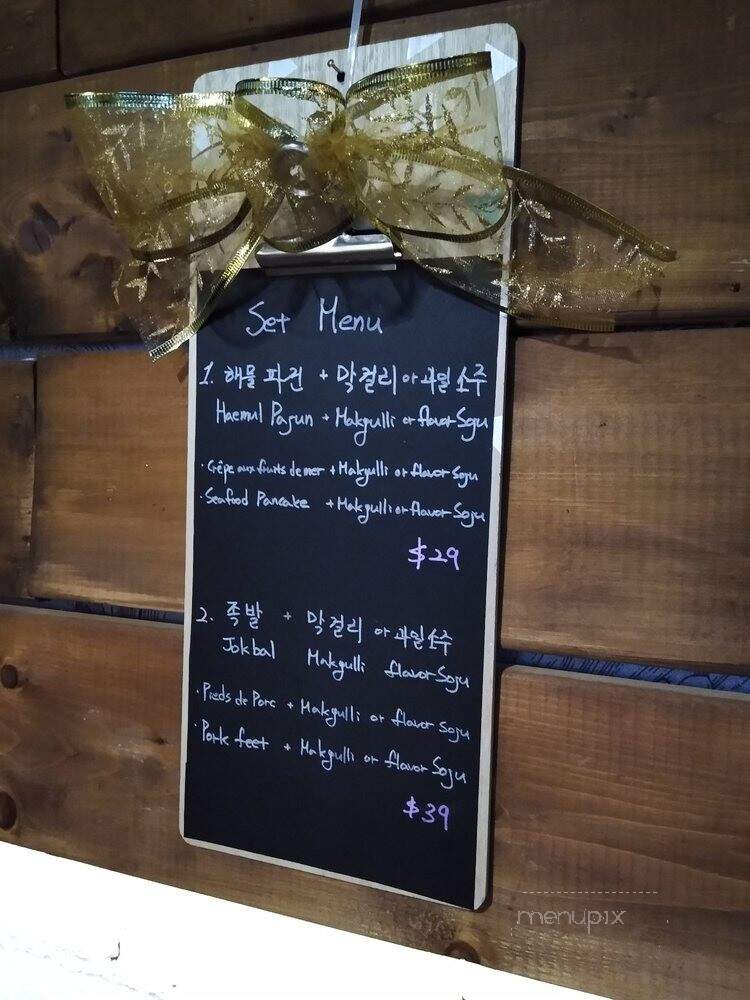 Set Menu
1. 해물 파전 + 막걸리 or 과일 소주
Haemul Pajun + Makgulli or flavor Soju
· Crêpe aux fruits de mer + Makgulli or flavor Soju
· Seafood Pancake + Makgulli or flavor Soju
$29
2. 족발 + 막걸리 or 과일 소주
Jokbal Makgulli flavor Soju
· Pieds de Porc + Makgulli or flavor Soju
· Pork feet + Makgulli or flavor Soju
$39
menupix